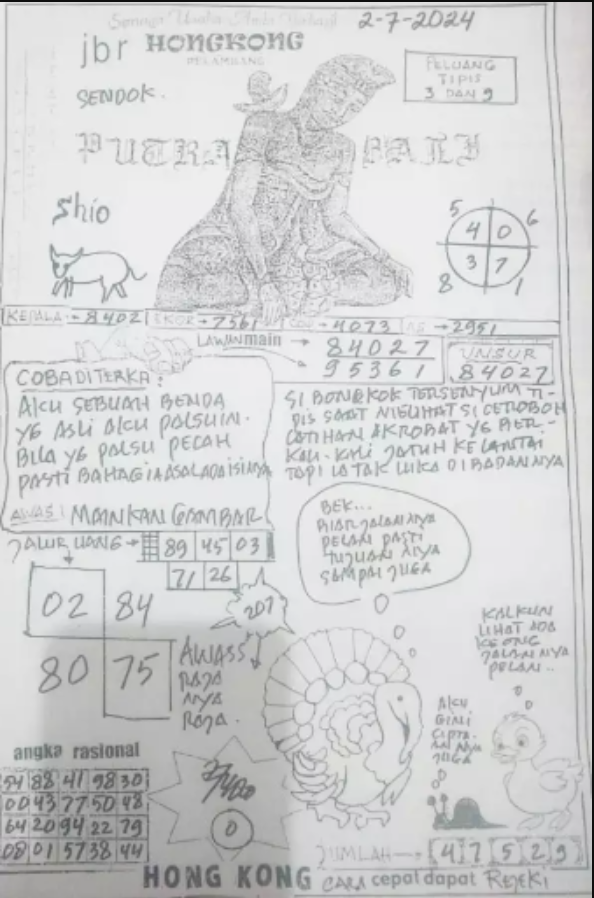 2-7-2024
jbr HONGKONG
SENDOK.
PELUANG
TIPIS
3 DAN 9
PUTRA BALI
Shio
5 6
4 0
3 7
8 1
KEPALA → 8402
EKOR → 7561
COP → 4073
AS → 2951
LAWAN main → 84027
95361
UNSUR
84027
COBA DITERKA:
AKU SEBUAH BENDA
YG ASLI AKU PALSUIN.
BILA YG PALSU PECAH
PASTI BAHAGIA ASAL ADA ISINYA
AWAS! MAINKAN GAMBAR
SI BONGKOK TERSENYUM TI-
PIS SAAT MELIHAT SI CEROBOH
LATIHAN AKROBAT YG BER-
KALI-KALI JATUH KE LANTAI
TAPI IA TAK LUKA DI BADANNYA
JALUR UANG →
89 45 03
71 26
02 84
80 75
207
AWASS
RAJA
NYA
RAJA.
BEK...
BIAR JALANNYA
PELAN PASTI
TUJUANNYA
SAMPAI JUGA
KALKUN
LIHAT ADA
KEONG
JALANNYA
PELAN..
AKU
GINI
CIPTA-
AN NYA
JUGA
angka rasional
54 88 41 98 30
00 43 77 50 48
64 20 94 22 79
08 01 57 38 44
0
JUMLAH → 4 7 5 2 9
HONG KONG CARA cepat dapat REJEKI